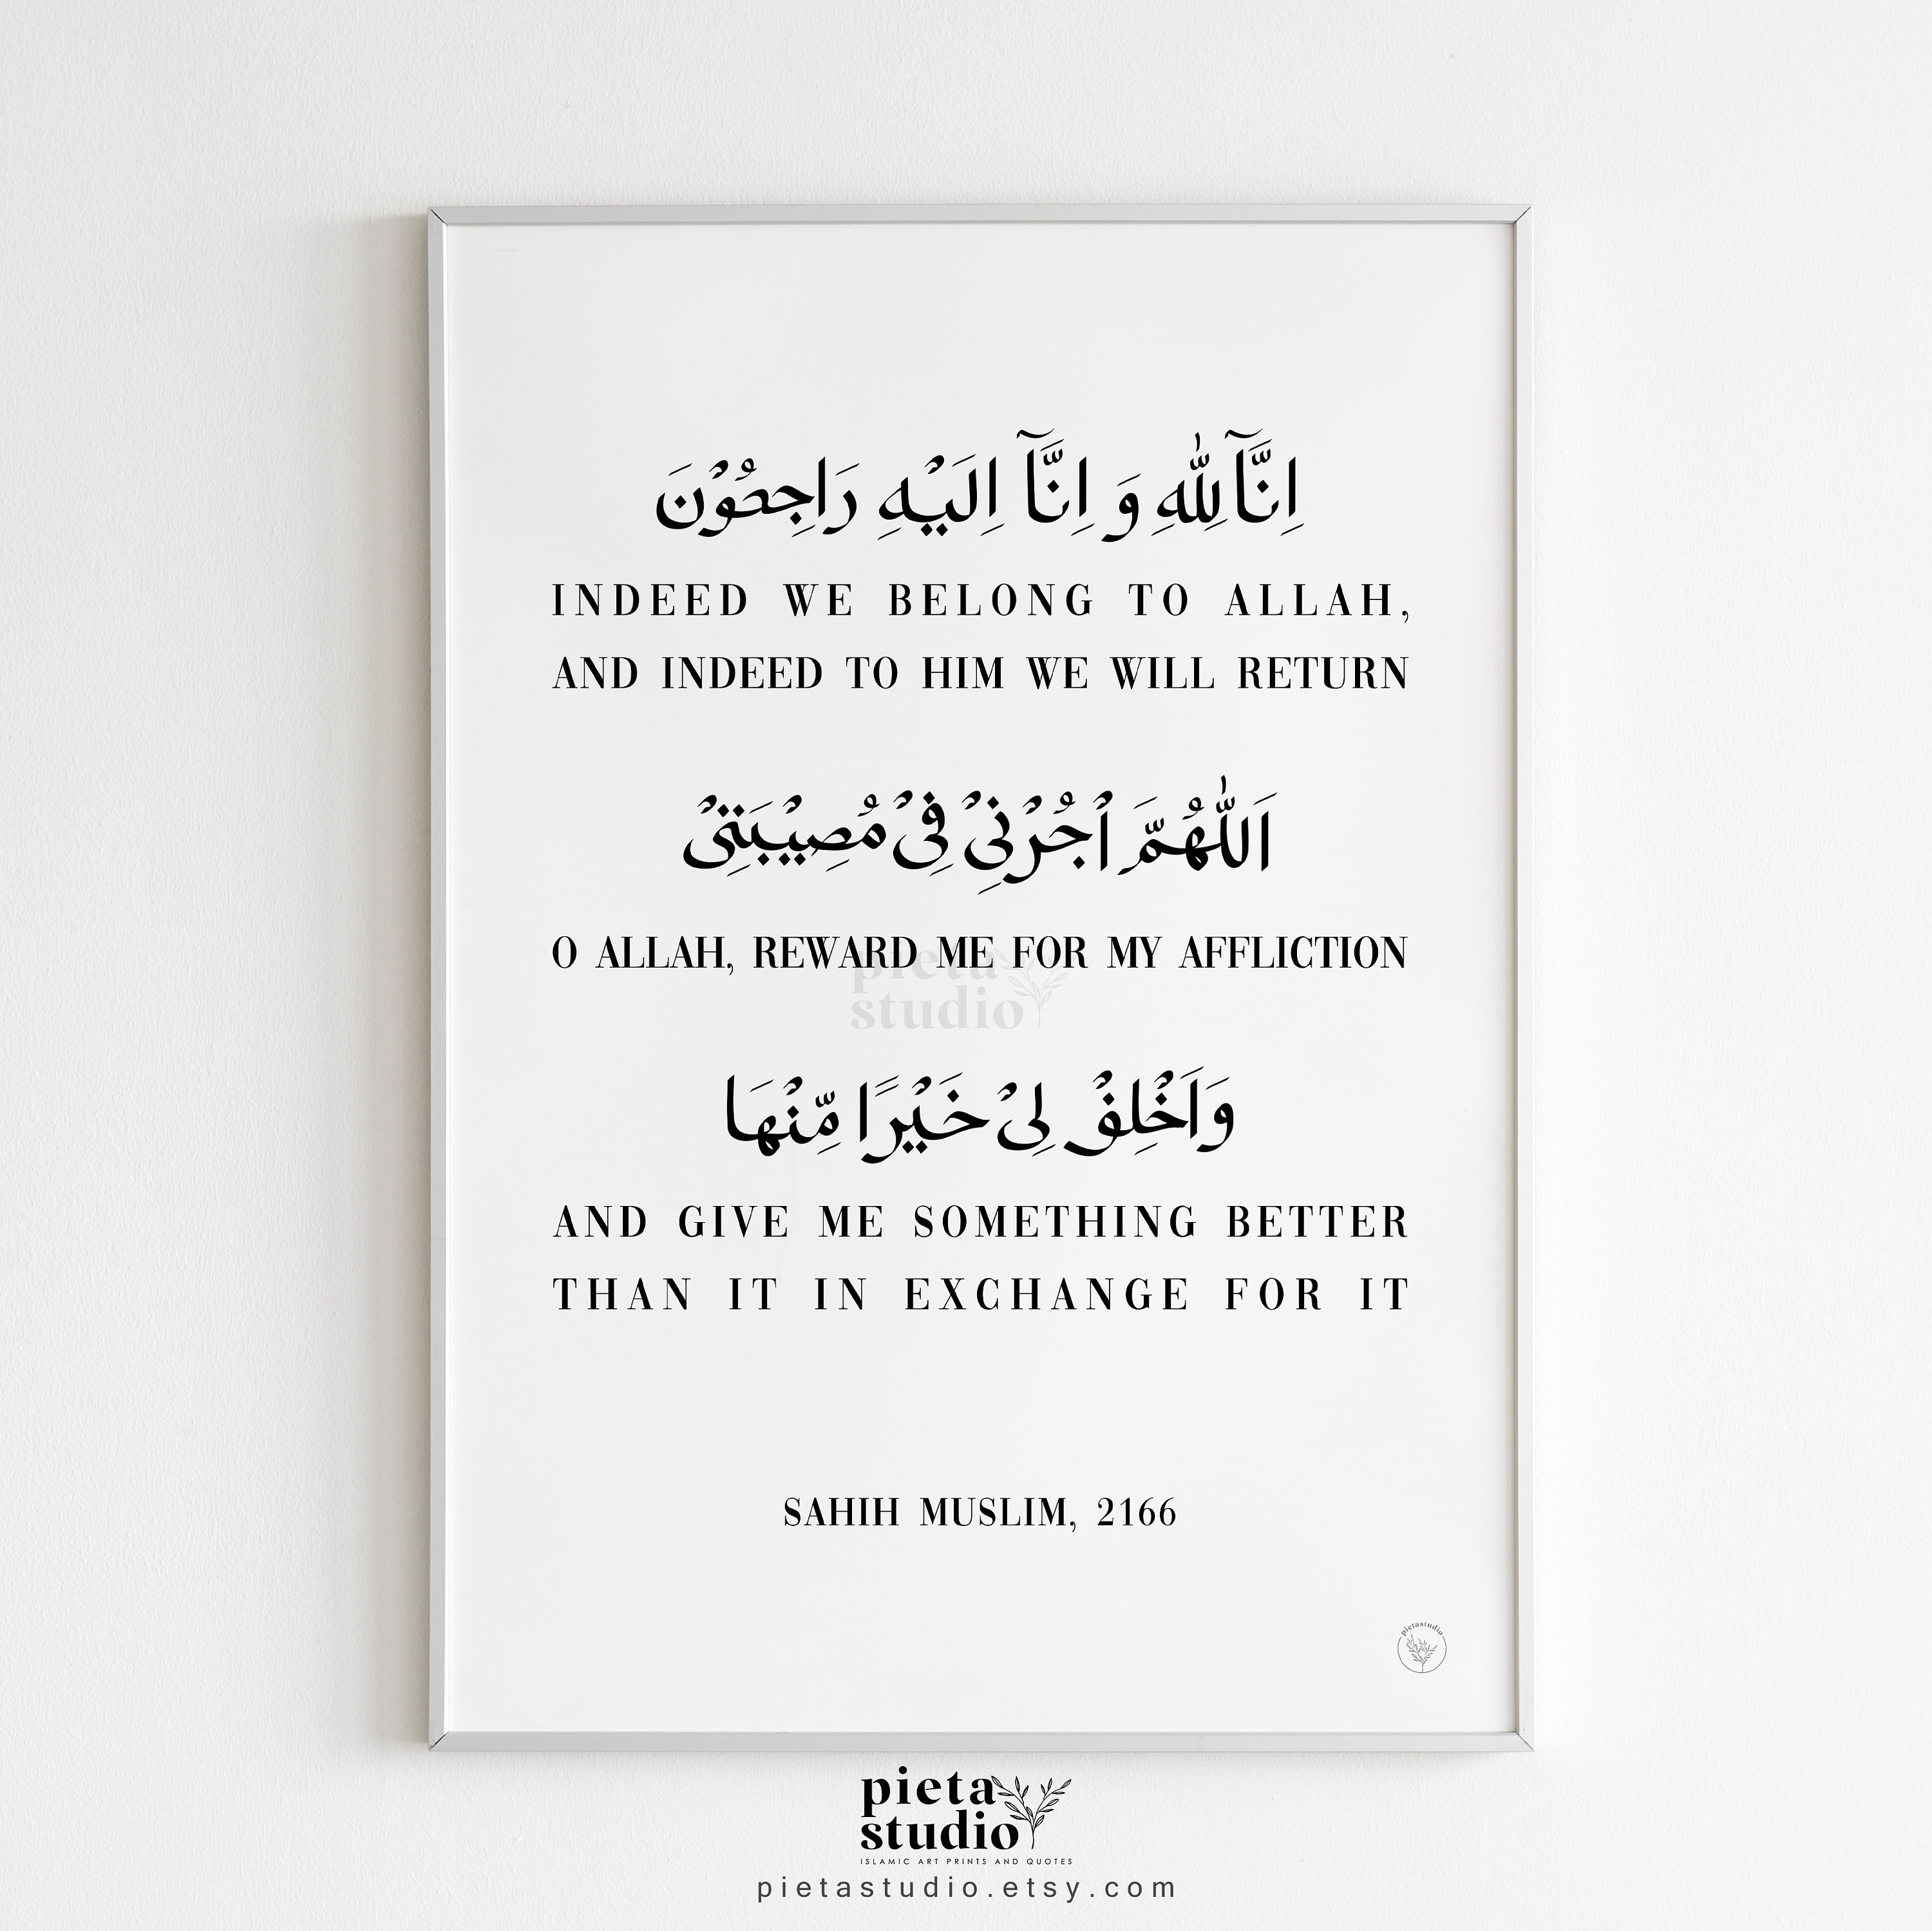 اِنَّآلِلّٰهِ وَ اِنَّآ اِلَيْهِ رَاجِعُوْنَ
INDEED WE BELONG TO ALLAH,
AND INDEED TO HIM WE WILL RETURN
اَللّٰهُمَّ اْجُرْنِيْ فِيْ مُصِيْبَتِيْ
O ALLAH, REWARD ME FOR MY AFFLICTION
pieta
studio
وَاَخْلِفْ لِيْ خَيْرًا مِّنْهَا
AND GIVE ME SOMETHING BETTER
THAN IT IN EXCHANGE FOR IT
SAHIH MUSLIM, 2166
pietastudio
pieta
studio
ISLAMIC ART PRINTS AND QUOTES
pietastudio.etsy.com